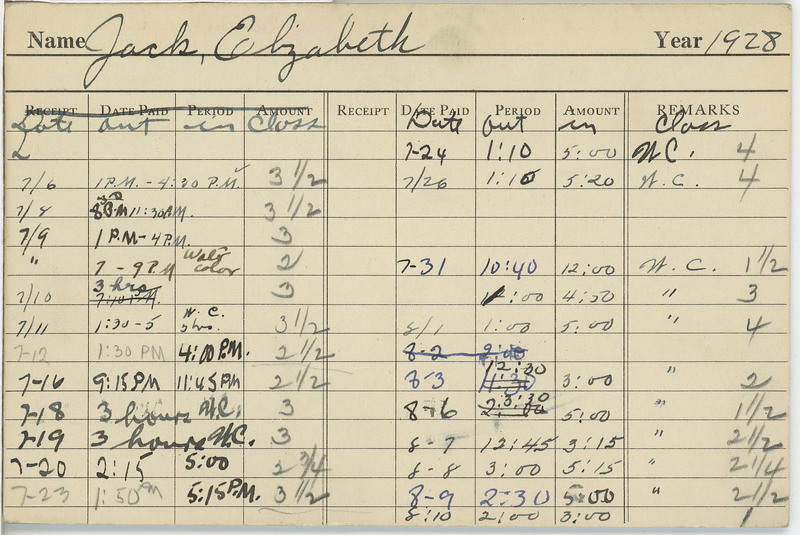 Name Jack, Elizabeth Year 1928
RECEIPT DATE PAID PERIOD AMOUNT RECEIPT DATE PAID PERIOD AMOUNT REMARKS
Date out in Class Date out in Class
7-24 1:10 5:00 W.C. 4
7/6 1 P.M. - 4:30 P.M. 3 1/2 7/26 1:10 5:20 W.C. 4
7/8 11:30 3 1/2
7/9 1 P.M - 4 P.M. 3
" 7 - 9 PM Water color 2 7-31 10:40 12:00 W.C. 1 1/2
7/10 3 hrs 3 1:00 4:50 " 3
7/11 1:30 - 5 W.C. 3 hrs. 3 1/2 8/1 1:00 5:00 " 4
7-12 1:30 PM 4:00 P.M. 2 1/2 8-2 2:00
7-16 9:15 PM 11:45 PM 2 1/2 8-3 12:00 11:30 3:00 " 2
7-18 3 hours W.C. 3 8-6 3:30 5:00 " 1 1/2
7-19 3 hours W.C. 3 8-7 12:45 3:15 " 2 1/2
7-20 2:15 5:00 2 3/4 8-8 3:00 5:15 " 2 1/4
7-23 1:50 PM 5:15 P.M. 3 1/2 8-9 2:30 5:00 " 2 1/2
8:10 2:00 3:00 1